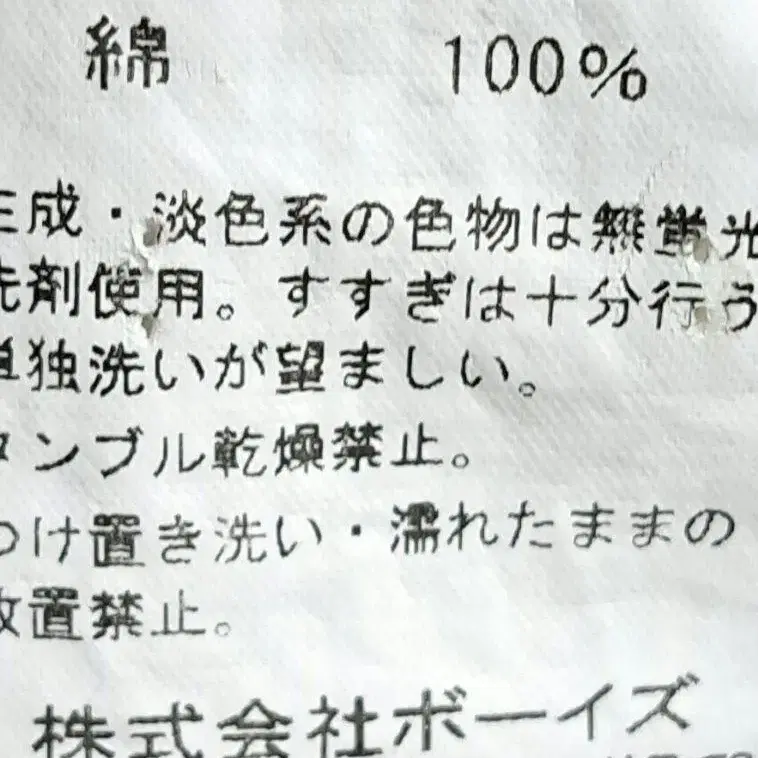 綿 100%
生成・淡色系の色物は無蛍光
洗剤使用。すすぎは十分行う
単独洗いが望ましい。
タンブル乾燥禁止。
つけ置き洗い・濡れたままの
放置禁止。
株式会社ボーイズ